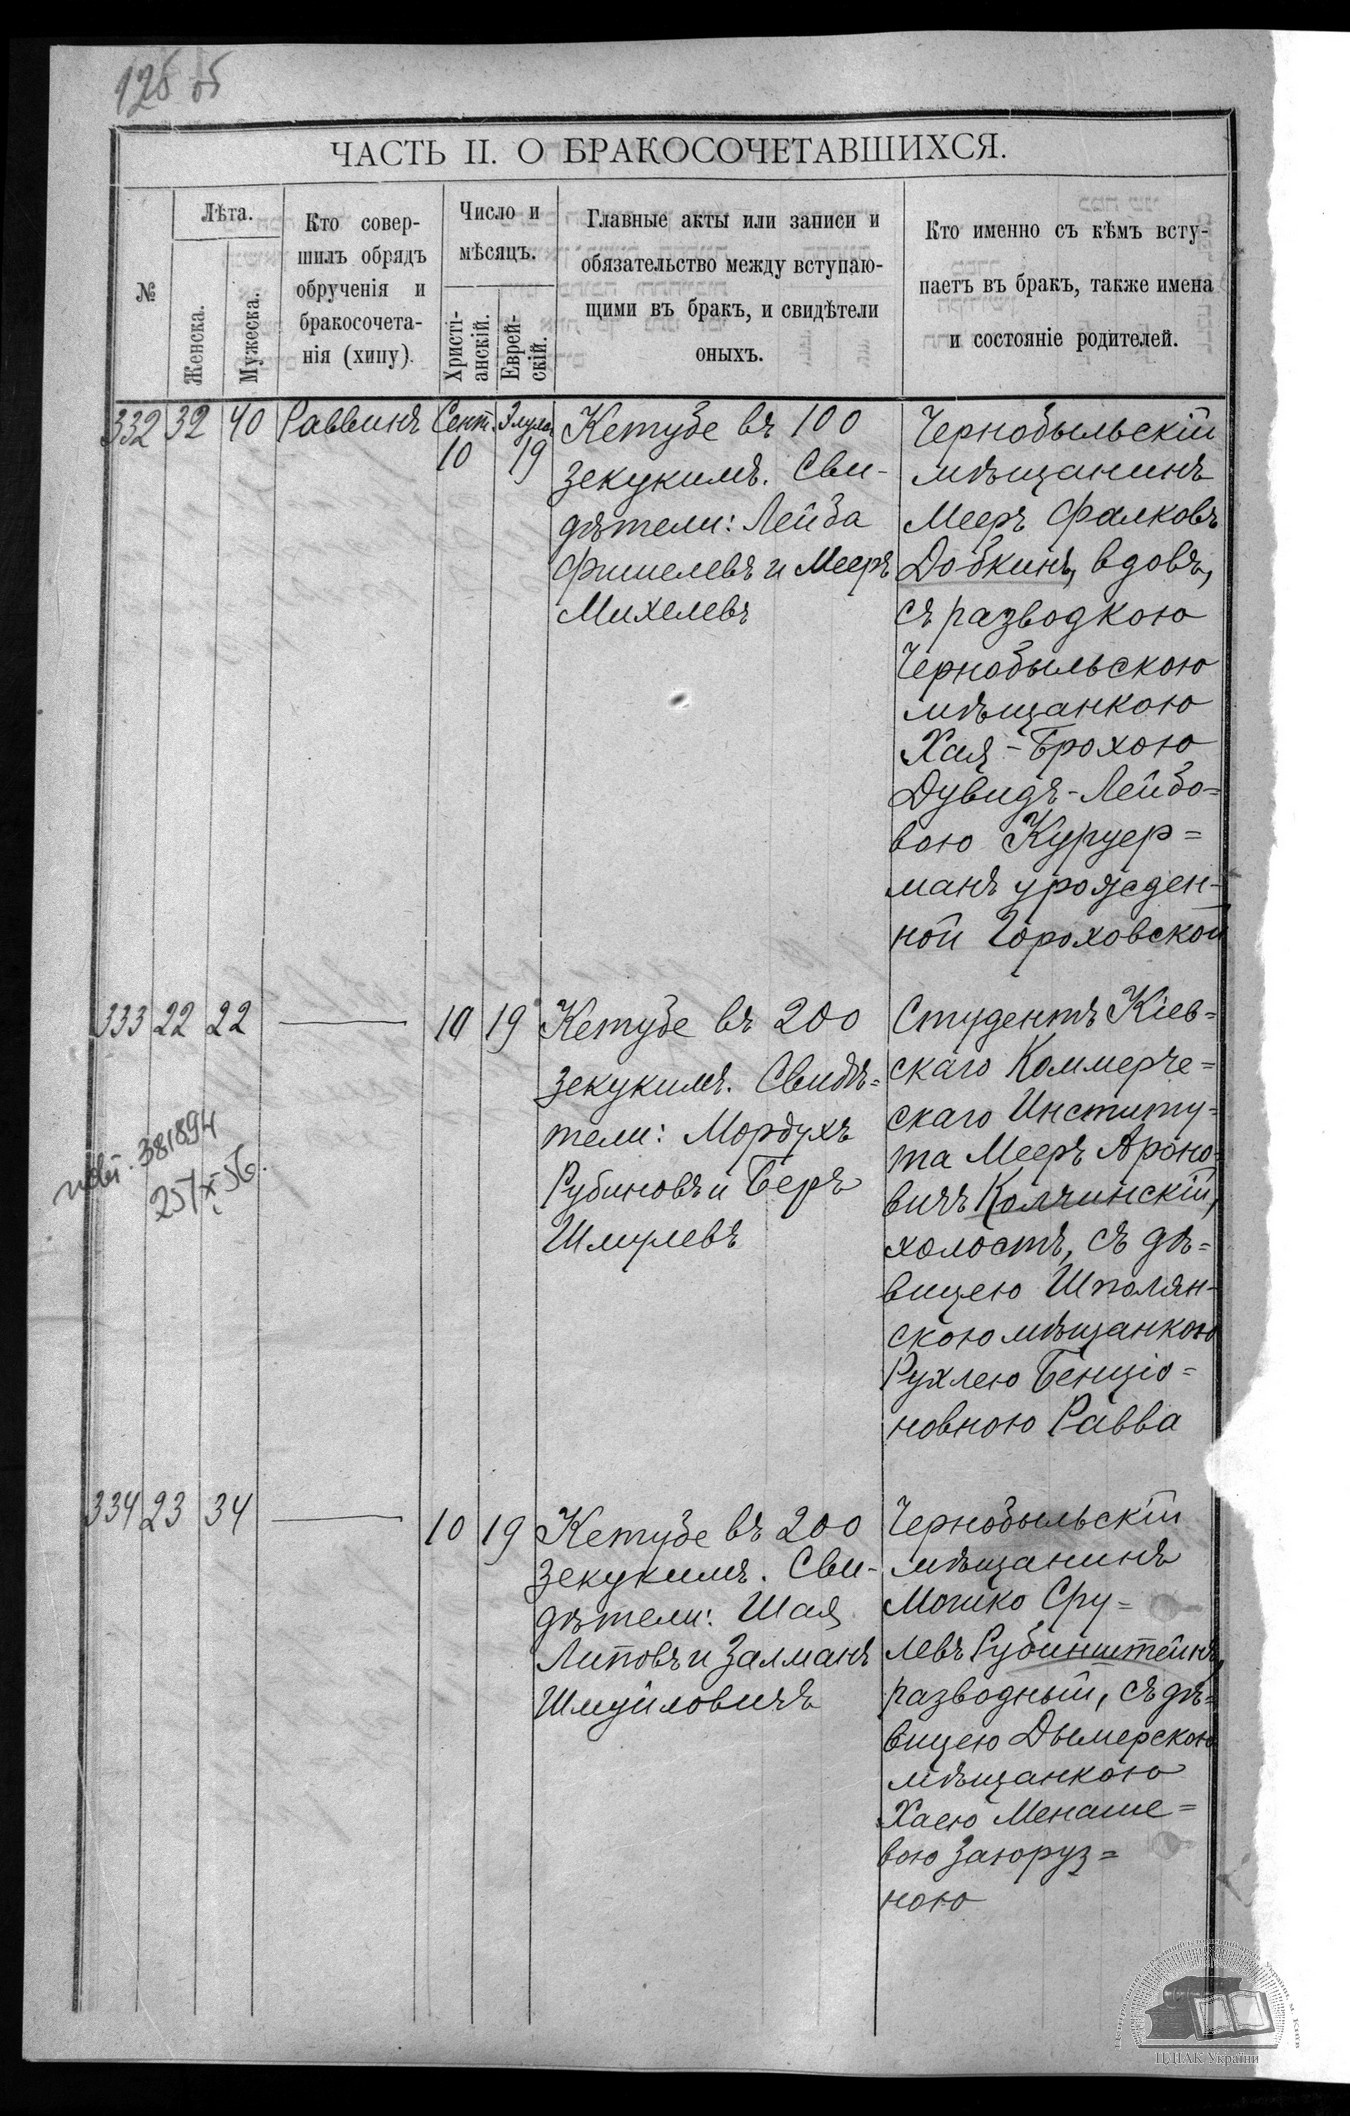 125 об
ЧАСТЬ II. О БРАКОСОЧЕТАВШИХСЯ.
№
Лѣта.
Женска.
Мужеска.
Кто совер-
шилъ обрядъ
обрученія и
бракосочета-
нія (хипу).
Число и
мѣсяцъ.
Христі-
анскій.
Еврей-
скій.
Главные акты или записи и
обязательство между вступаю-
щими въ бракъ, и свидѣтели
оныхъ.
Кто именно съ кѣмъ всту-
паетъ въ бракъ, также имена
и состояніе родителей.
332 32 40 Раввинъ Сент. 10 Элула 19
Кетубе въ 100
зекукимъ. Сви-
дѣтели: Лейба
Фишелевъ и Мееръ
Михелевъ
Чернобыльскій
мѣщанинъ
Мееръ Фалковъ
Добкинъ, вдовъ,
съ разводкою
Чернобыльскою
мѣщанкою
Хая-Брохою
Дувидъ-Лейбо=
вою Куцер=
манъ урожден-
ной Гороховской
333 22 22 10 19
Кетубе въ 200
зекукимъ. Свидѣ=
тели: Мордухъ
Рубиновъ и Беръ
Шмулевъ
Студентъ Кіев=
скаго Коммерче=
скаго Институ=
та Мееръ Ароно=
вичъ Колчинскій,
холостъ, съ дѣ=
вицею Шполян-
скою мѣщанкою
Рухлею Бенціо=
новною Равва
381894
25/X 56.
334 23 34 10 19
Кетубе въ 200
зекукимъ. Сви-
дѣтели: Шая
Липовъ и Залманъ
Шмуйловичъ
Чернобыльскій
мѣщанинъ
Мошко Сру=
левъ Рубинштейнъ,
разводный, съ дѣ=
вицею Дымерскою
мѣщанкою
Хаею Менаше=
вою Загоруз=
ною
ЦДІАК України